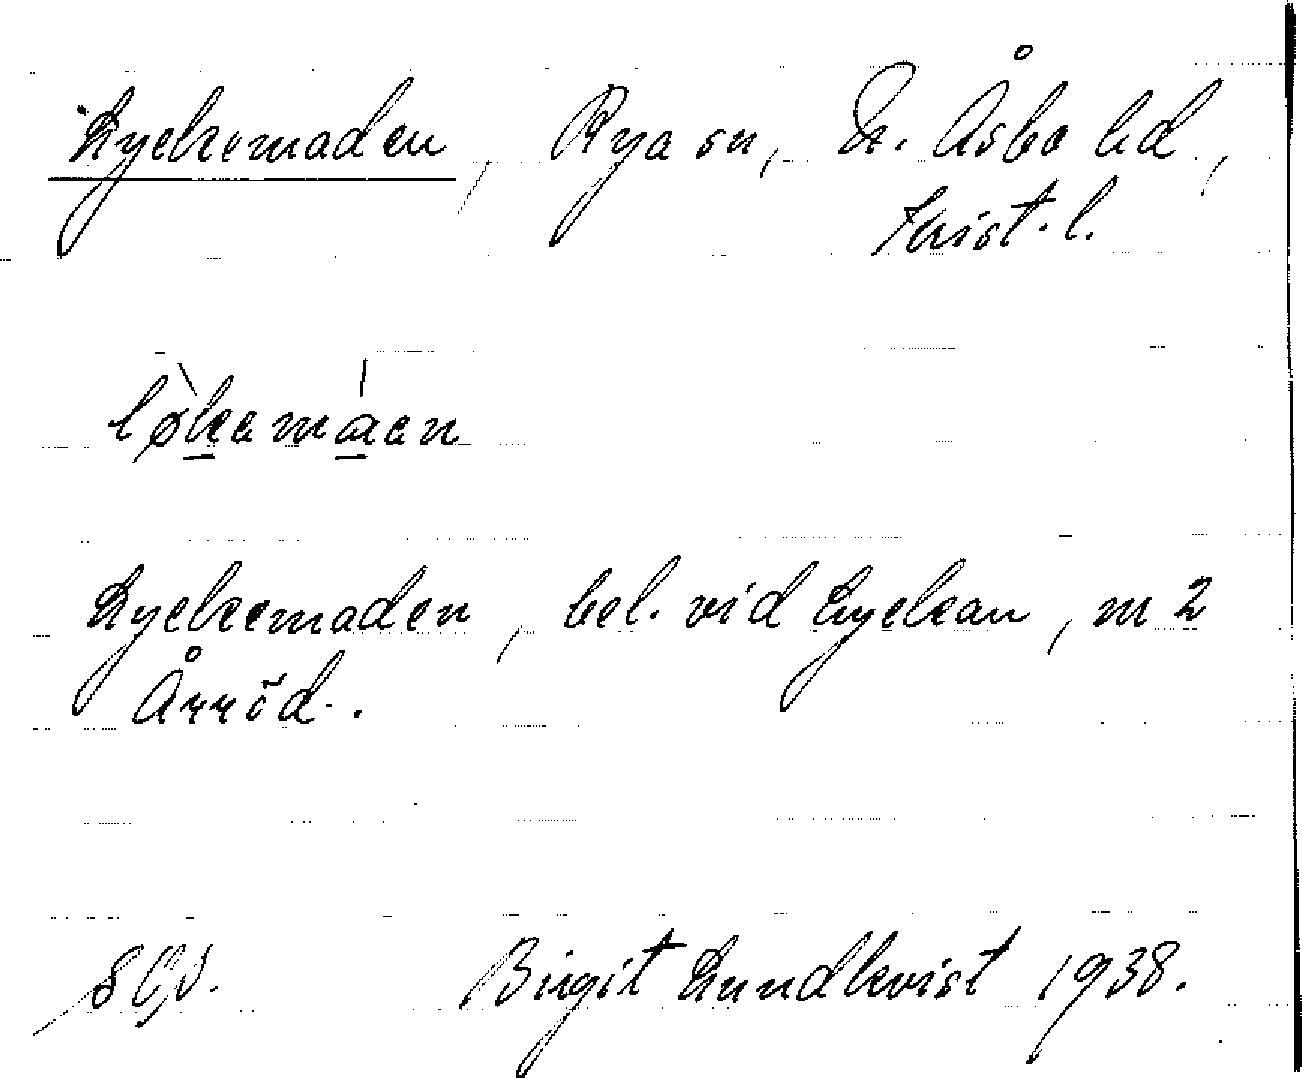 Lyckemaden, Rya sn, N. Åsbo hd,
Krist. l.
løkemaen
Lyckemaden, bel. vid Lyckan, m 2
Årröd.
Birgit Lundkvist 1938.